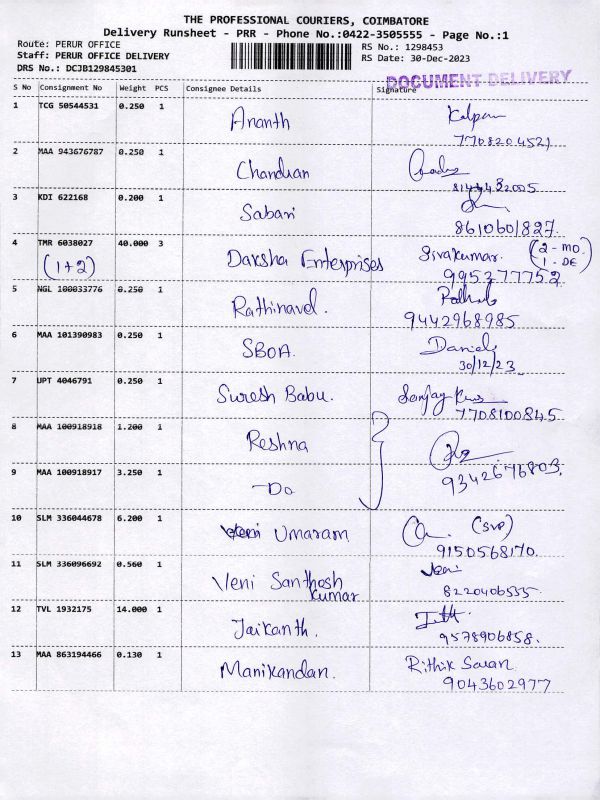 THE PROFESSIONAL COURIERS, COIMBATORE
Delivery Runsheet - PRR - Phone No.:0422-3505555 - Page No.:1
Route: PERUR OFFICE
Staff: PERUR OFFICE DELIVERY
DRS No.: DCJB129845301
RS No.: 1298453
RS Date: 30-Dec-2023
DOCUMENT DELIVERY
S No Consignment No Weight PCS Consignee Details Signature
1 TCG 50544531 0.250 1 Ananth Kalpana
7708204521
2 MAA 943676787 0.250 1 Chandran
3 KDI 622168 0.200 1 Sabari
8610601827.
4 TMR 6038027 40.000 3 Daksha Enterprises Sivakumar. (2 - MD
(1+2) 1 - DE)
995377752
5 NGL 100033776 0.250 1 Rathinavel.
9442968985
6 MAA 101390983 0.250 1 SBOA. Daniel
30/12/23
7 UPT 4046791 0.250 1 Suresh Babu. Sanjay
7708100845
8 MAA 100918918 1.200 1 Reshna
9 MAA 100918917 3.250 1 -Do
9342676803.
10 SLM 336044678 6.200 1 Umaram (SVP)
9150568170.
11 SLM 336096692 0.560 1 Veni Santhosh Kumar Veni
8220406535.
12 TVL 1932175 14.000 1 Jaikanth.
9578906858.
13 MAA 863194466 0.130 1 Manikandan. Rithik Saran
9043602977